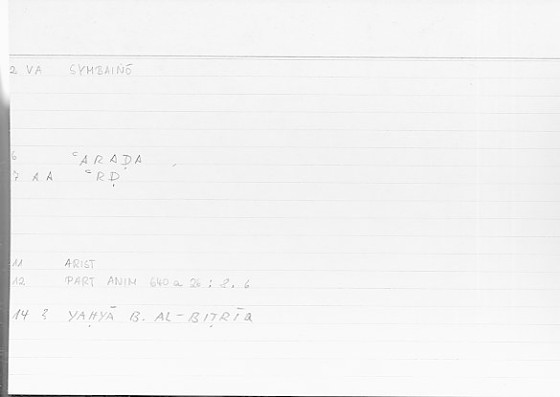 2 VA SYMBAINŌ
6 ʿARAḌA
7 AA ʿRḌ
11 ARIST
12 PART ANIM 640a 26 : 8.6
14 ? YAḤYĀ B. AL-BIṬRĪQ